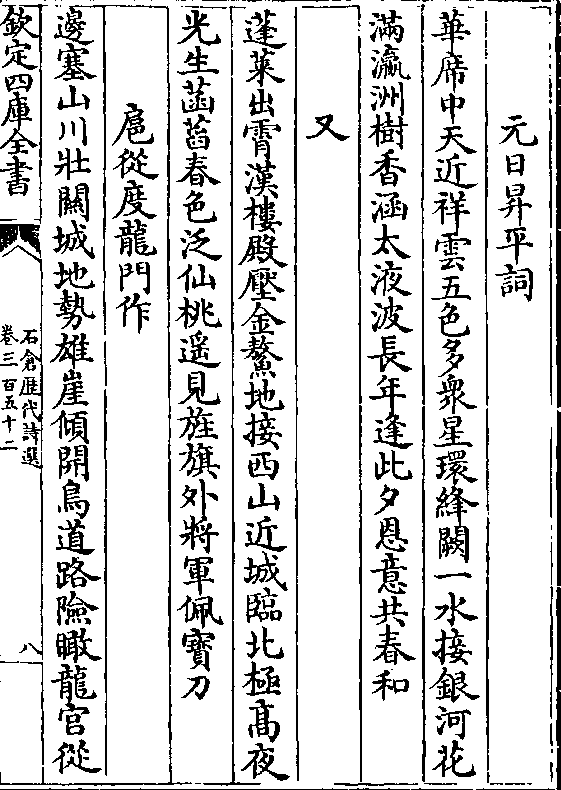 元日昇平詞
華席中天近祥雲五色多衆星環絳闕一水接銀河花
滿瀛洲樹香涵太液波長年逢此夕恩意共春和
又
蓬萊出霄漢樓殿壓金鰲地接西山近城臨北極髙夜
光生菡萏春色泛仙桃遥見旌旗外將軍佩寳刀
扈從度龍門作
邊塞山川壯關城地勢雄崖傾開鳥道路險瞰龍宫從
欽定四庫全書
石倉歴代詩選
卷三百五十二
八